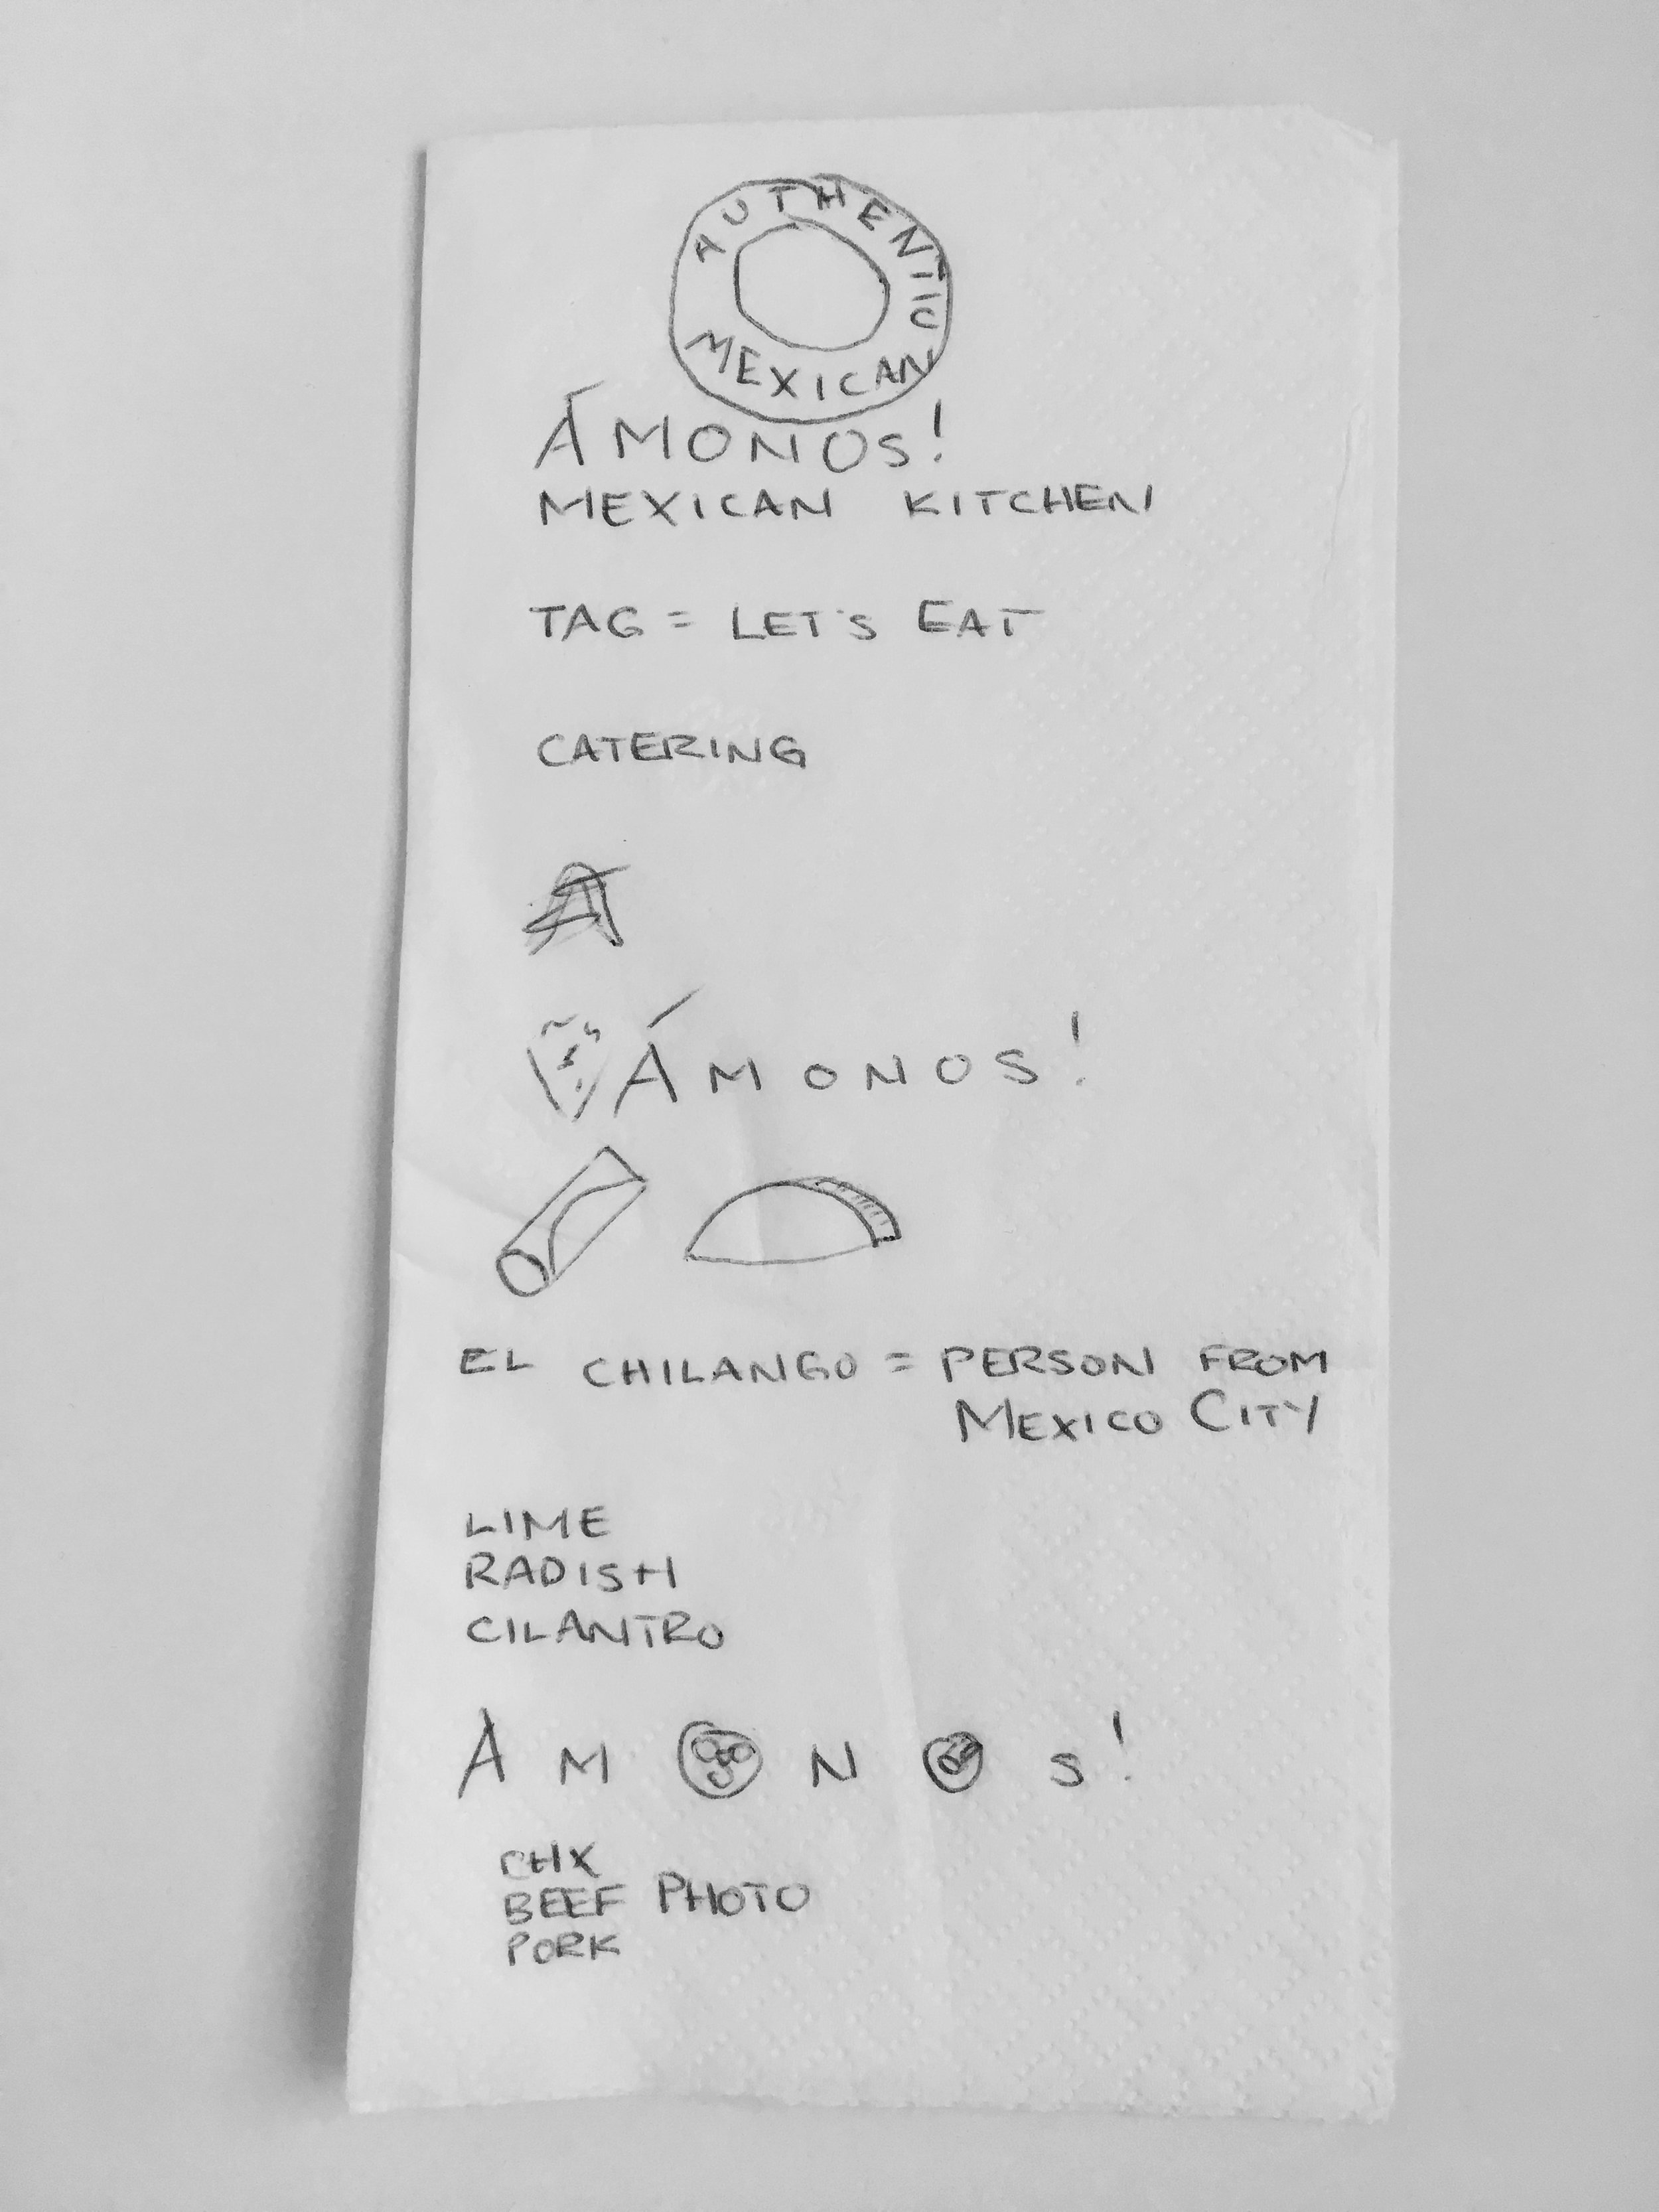 AUTHENTIC
MEXICAN
ÁMONOS!
MEXICAN KITCHEN
TAG = LET'S EAT
CATERING
A
ÁMONOS!
EL CHILANGO = PERSON FROM
MEXICO CITY
LIME
RADISH
CILANTRO
AMONOS!
CHX
BEEF PHOTO
PORK